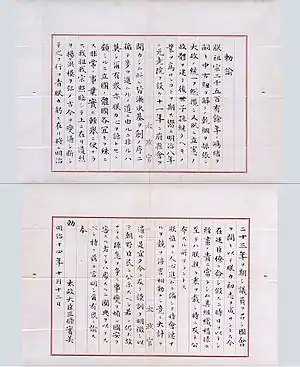 勅諭
朕祖宗二千五百有餘年ノ鴻緒ヲ
嗣キ中古紐ヲ解クノ乾綱ヲ振張シ
大政ノ統一ヲ總攬シ又夙ニ立憲ノ
政體ヲ建テ後世子孫繼クヘキノ
業ヲ爲サンコトヲ期ス嚮ニ明治八年
ニ元老院ヲ設ケ十一年ニ府縣會ヲ
太政官
開カシム此レ皆漸次基ヲ創メ序ニ
循テ歩ヲ進ムルノ道ニ由ルニ非サルハ
莫シ爾有衆亦朕カ心ヲ諒トセン
顧ミルニ立國ノ體國各宜キヲ殊ニ
ス非常ノ事業實ニ輕擧ニ便ナラ
ス我祖我宗照臨シテ上ニ在リ遺烈
ヲ揚ケ洪模ヲ弘メ古今ヲ變通シ斷シ
テ之ヲ行フ責朕カ躬ニ在リ將ニ明治
二十三年ヲ期シ議員ヲ召シ國會
ヲ開キ以テ朕カ初志ヲ成サントス今
在廷臣僚ニ命シ假スニ時日ヲ以テシ
經畫ノ責ニ當ラシム其組織權限ニ
至テハ朕親ラ衷ヲ裁シ時ニ及テ公
布スル所アラントス
朕惟フニ人心進ムニ偏シテ時會速
太政官
ナルヲ競フ浮言相動カシ竟ニ大計ヲ
遺ル是レ宜シク今ニ及テ謨訓ヲ明徴シ以
テ朝野臣民ニ公示スヘシ若シ仍ホ故サ
ラニ躁急ヲ爭ヒ事變ヲ煽シ國安ヲ
害スル者アラハ處スルニ國典ヲ以テス
ヘシ特ニ茲ニ言明シ爾有衆ニ諭ス
奉
勅
太政大臣三條實美
明治十四年十月十二日